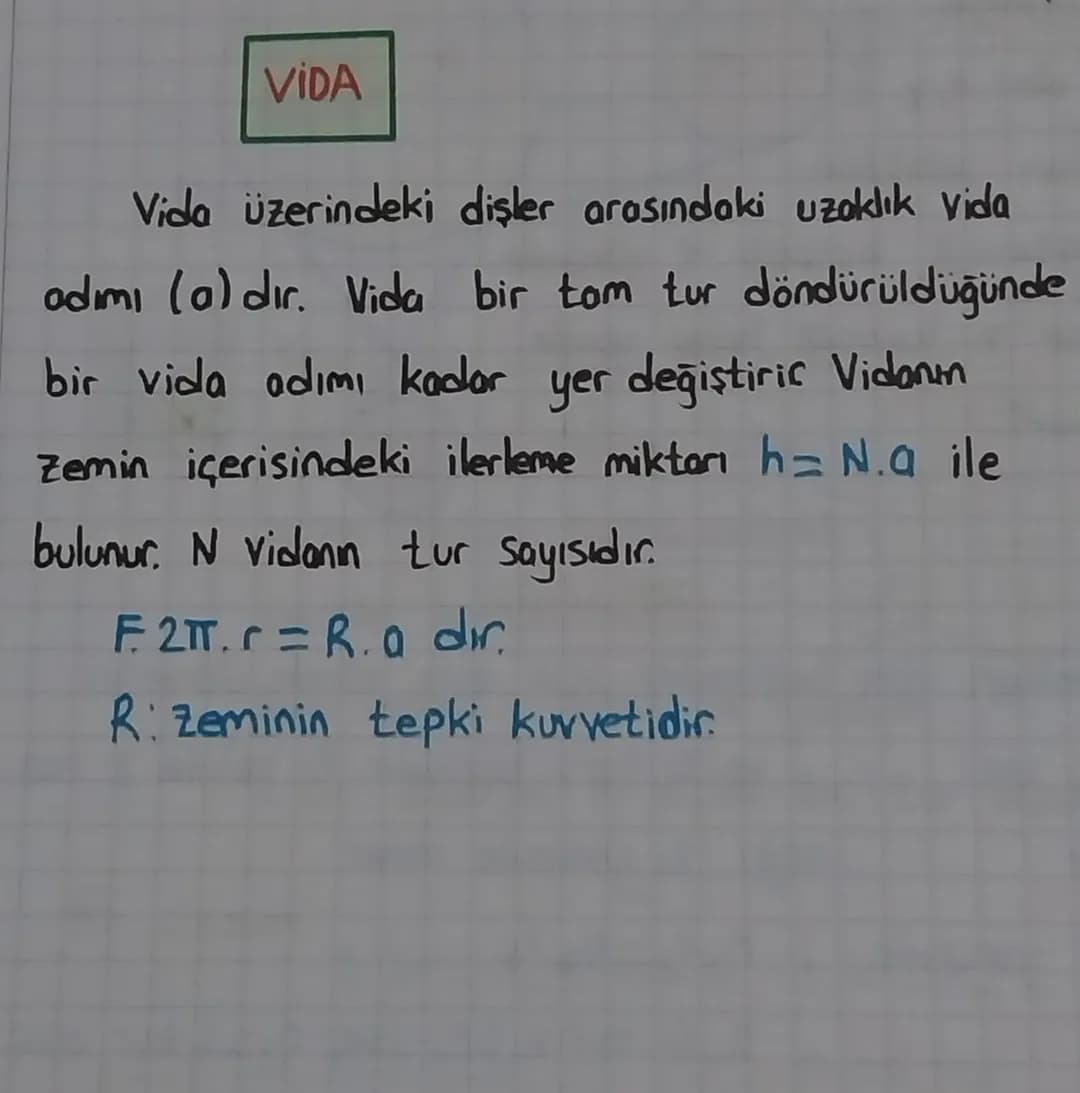 VİDA
Vida üzerindeki dişler arasındaki uzaklık vida
adımı (a) dır. Vida bir tam tur döndürüldüğünde
bir vida adımı kadar yer değiştirir. Vidanın
zemin içerisindeki ilerleme miktarı h = N.a ile
bulunur. N vidanın tur sayısıdır.
F. 2π.r = R.a dır.
R: zeminin tepki kuvvetidir.